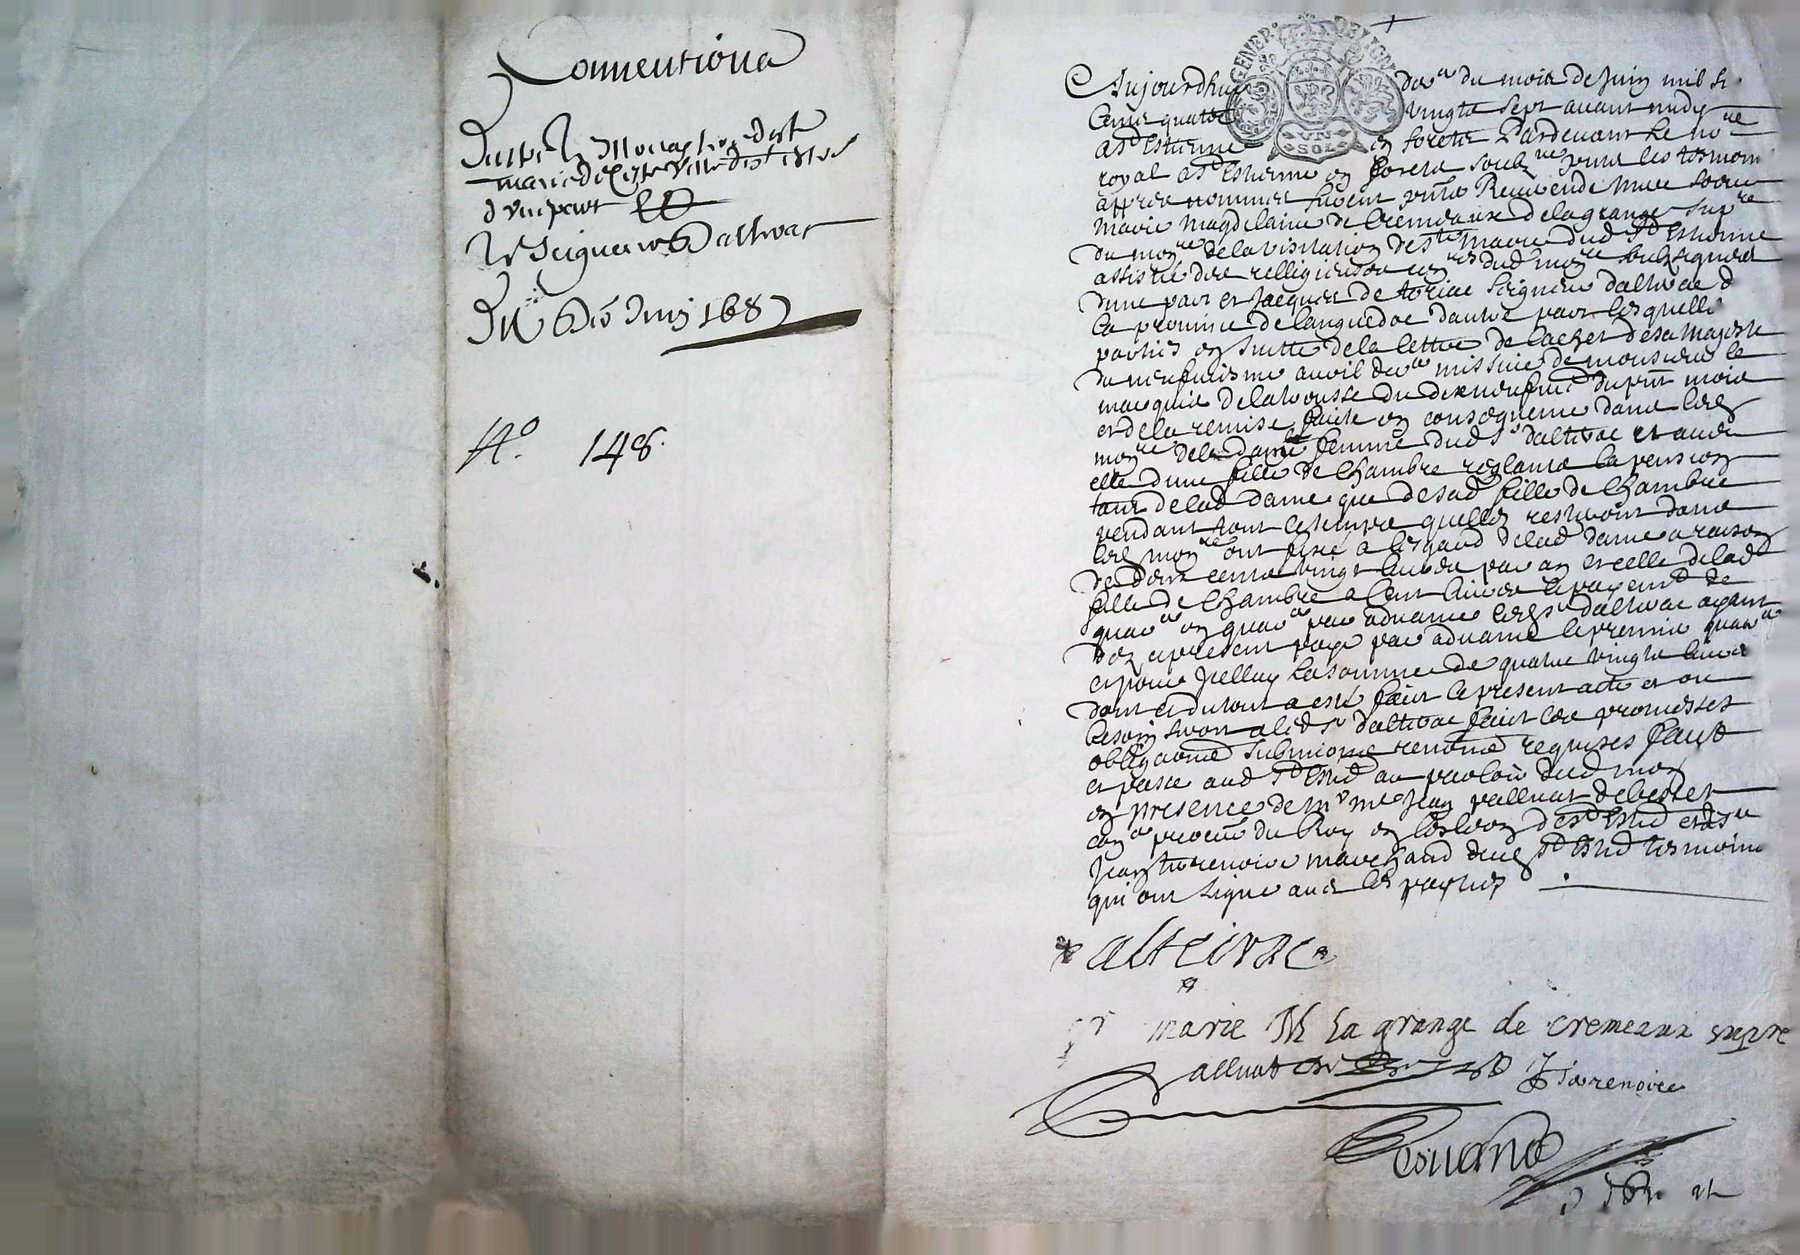 Conventions
Entre le Monastere de Ste
marie de cette ville de St Estne
d'une part
le Seigneur Dalteirac
Du Juin 1687
No. 148.
GENER DE LYON
SOLS
Aujourdhuy du mois de Juin mil six
Cents quatre vingts sept avant midy
a St Estienne en forestz Pardevant le nore
royal a St Estienne en forestz soubzne et les tesmoins
appres nommes furent Reverende Mere Soeur
Marie Magdelaine de Cremeaux de la grange Supre
du monre de la visitation de Ste Marie dud St Estienne
assistee des relligieuses dud monre soubsignees
d'une part et Jacques de toriac Seigneur dalteirac
la province de languedoc dautre part lesquelles
parties en suitte de la lettre de cachet de sa Majeste
du avril missive de monsieur le
marquis de la trousse du du prnt mois
et de la remise faite en consequence dans led
monre de la dame femme dud Sr dalteirac et avec
elle d'une fille de Chambre reglant la pension
tant de lad dame que de sad fille de Chambre
pendant tout le temps quelles resteront dans
led monre ont fixé a lesgard de lad dame a raison
de deux cents vingt livres par an et celle de lad
fille de Chambre a Cent livres payement de
quarer en quarer par advance led Sr dalteirac ayant
des apresent payé par advance le premier quarer
et pour Icelluy la somme de quatre vingts livres
dont et du tout a esté fait le present acte et ou
besoin seroit a led Sr dalteirac fait les promesses
obligaons submissions renons requises fait
et passé aud St Estne au parloir dud mon
en presence de Mr me Jean palluat de besset
conr procur du Roy en lellection de St Estne et de Sr
Jean thevenoire marchand dud St Estne tesmoins
qui ont signé avec les parties
alteirac
sr marie M la grange de cremeaux supre
Palluat
J Thevenoire